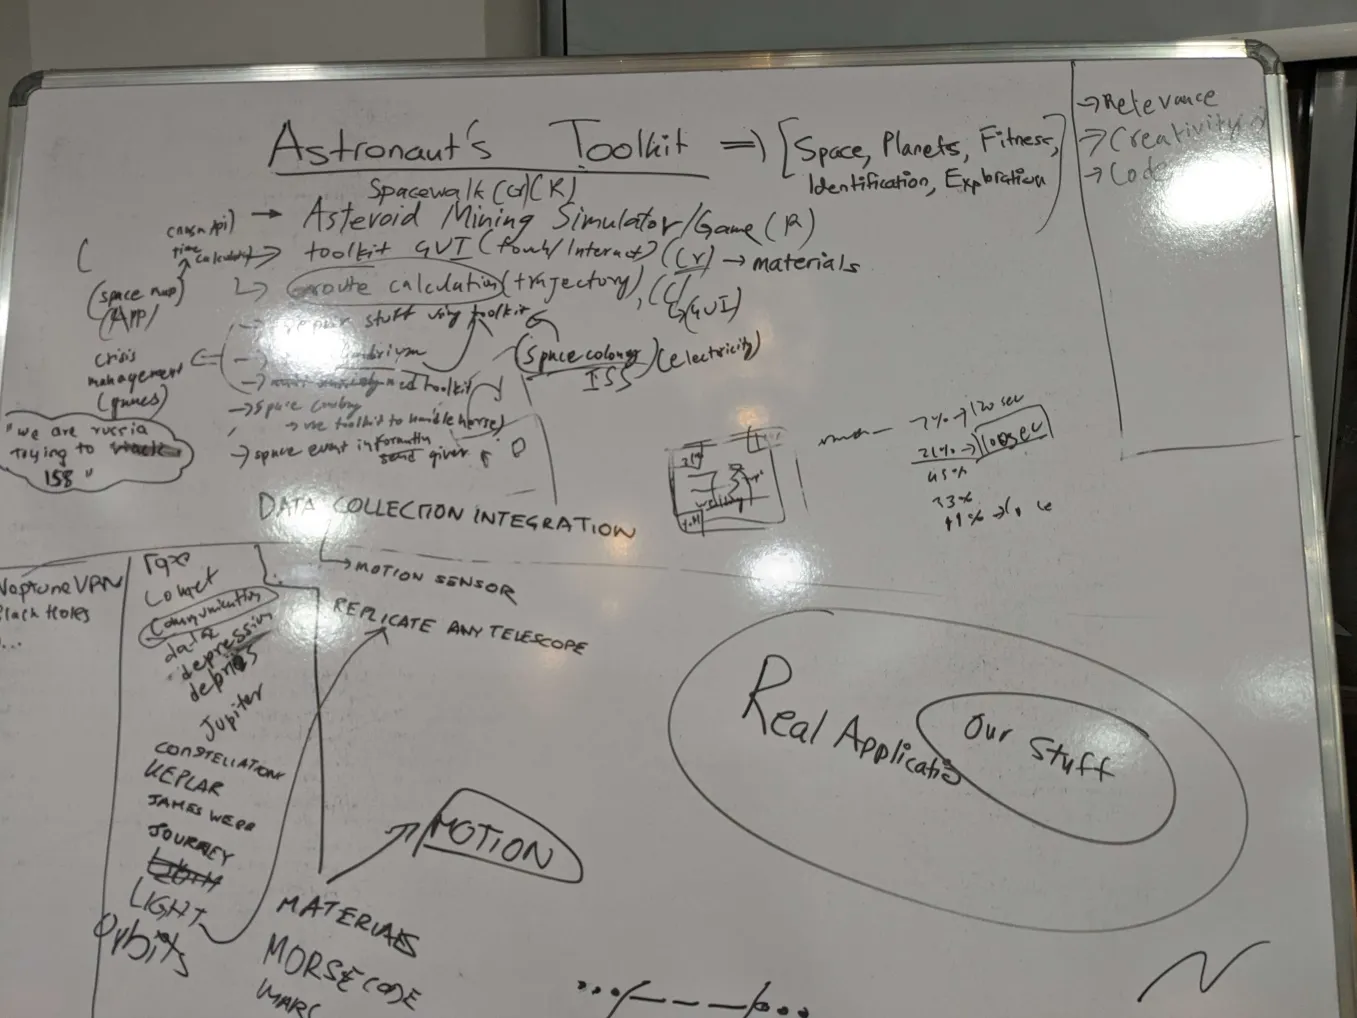 Astronaut's Toolkit => [Space, Planets, Fitness,
Identification, Exploration]
→Relevance
→Creativity
→Code
Spacewalk (Cr)(R)
→ Asteroid Mining Simulator/Game (R)
toolkit GUI (touch/Interact) (Cr) → materials
route calculation (trajectory), (C)
GUI)
time
calculator
(space map)
(App)
stuff using toolkit
(Space colony) (electricity)
ISS
crisis
management
(games)
toolkit
→ space cowboy
→ use toolkit to handle horse)
→ space event information
send giver
"we are russia
trying to
158"
7% → 120 sec
21% → 100sec
45%
33%
41% →
DATA COLLECTION INTEGRATION
→ MOTION SENSOR
REPLICATE ANY TELESCOPE
Neptune VPN
Black Holes
...
Comet
Communication
data
depression
debris
Jupiter
CONSTELLATION
KEPLAR
JAMES WEBB
JOURNEY
LIGHT
Orbits
MOTION
MATERIALS
MORSE CODE
MARS
Real Application
Our Stuff
•••/———/•••